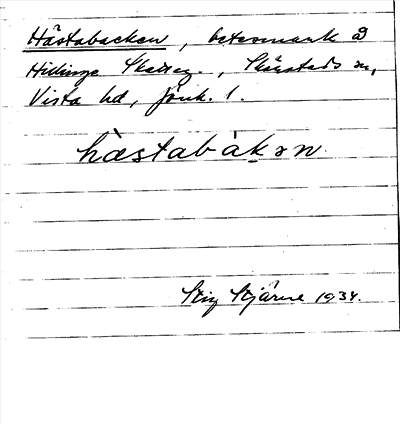 Hästabacken, betesmark å
Hillinge Skatteg., Skärstads sn,
Vista hd, Jönk. l.
hàstabàkən
Stig Stjärne 1934.